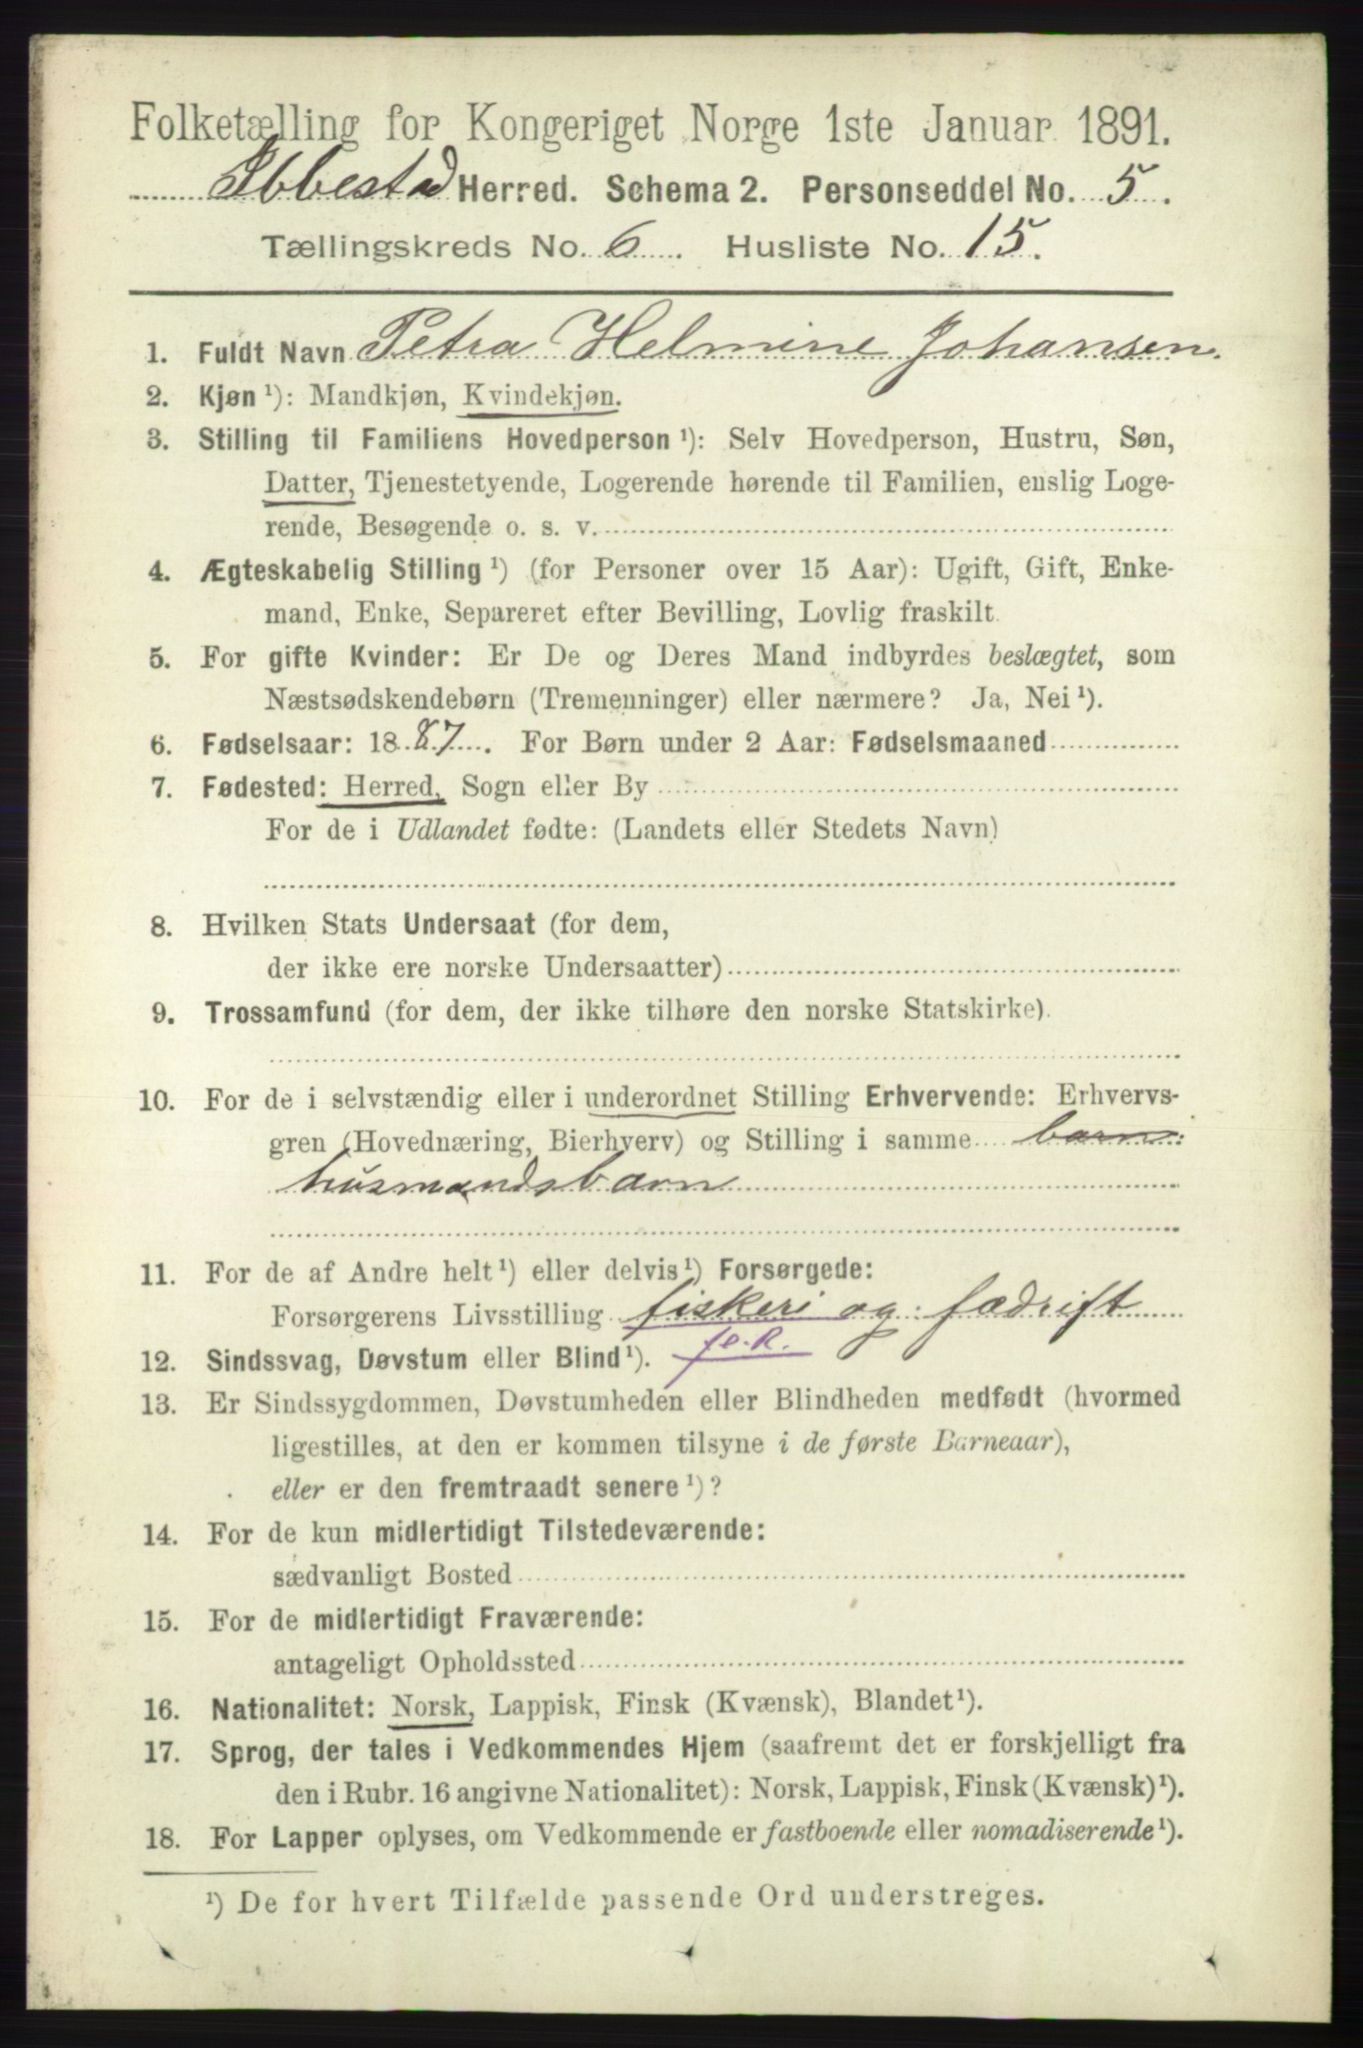 Folketælling for Kongeriget Norge 1ste Januar 1891.
Ibbestad Herred. Schema 2. Personseddel No. 5.
Tællingskreds No. 6. Husliste No. 15.
1. Fuldt Navn Petra Helmine Johansen.
2. Kjøn ¹): Mandkjøn, Kvindekjøn.
3. Stilling til Familiens Hovedperson ¹): Selv Hovedperson, Hustru, Søn,
Datter, Tjenestetyende, Logerende hørende til Familien, enslig Loge-
rende, Besøgende o. s. v.
4. Ægteskabelig Stilling ¹) (for Personer over 15 Aar): Ugift, Gift, Enke-
mand, Enke, Separeret efter Bevilling, Lovlig fraskilt.
5. For gifte Kvinder: Er De og Deres Mand indbyrdes beslægtet, som
Næstsødskendebørn (Tremenninger) eller nærmere? Ja, Nei ¹).
6. Fødselsaar: 1887. For Børn under 2 Aar: Fødselsmaaned
7. Fødested: Herred, Sogn eller By
For de i Udlandet fødte: (Landets eller Stedets Navn)
8. Hvilken Stats Undersaat (for dem,
der ikke ere norske Undersaatter)
9. Trossamfund (for dem, der ikke tilhøre den norske Statskirke).
10. For de i selvstændig eller i underordnet Stilling Erhvervende: Erhvervs-
gren (Hovednæring, Bierhverv) og Stilling i samme barn
husmandsbarn
11. For de af Andre helt ¹) eller delvis ¹) Forsørgede:
Forsørgerens Livsstilling fiskeri og fædrift
12. Sindssvag, Døvstum eller Blind ¹).
13. Er Sindssygdommen, Døvstumheden eller Blindheden medfødt (hvormed
ligestilles, at den er kommen tilsyne i de første Barneaar),
eller er den fremtraadt senere ¹)?
14. For de kun midlertidigt Tilstedeværende:
sædvanligt Bosted
15. For de midlertidigt Fraværende:
antageligt Opholdssted
16. Nationalitet: Norsk, Lappisk, Finsk (Kvænsk), Blandet ¹).
17. Sprog, der tales i Vedkommendes Hjem (saafremt det er forskjelligt fra
den i Rubr. 16 angivne Nationalitet): Norsk, Lappisk, Finsk (Kvænsk) ¹).
18. For Lapper oplyses, om Vedkommende er fastboende eller nomadiserende ¹).
¹) De for hvert Tilfælde passende Ord understreges.